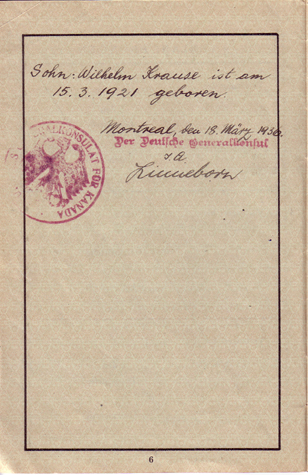 Sohn: Wilhelm Krause ist am
15. 3. 1921 geboren.
Montreal, den 18. März 1930.
Der Deutsche Generalkonsul
I.A.
Linneborn
GENERALKONSULAT FÜR KANADA
6